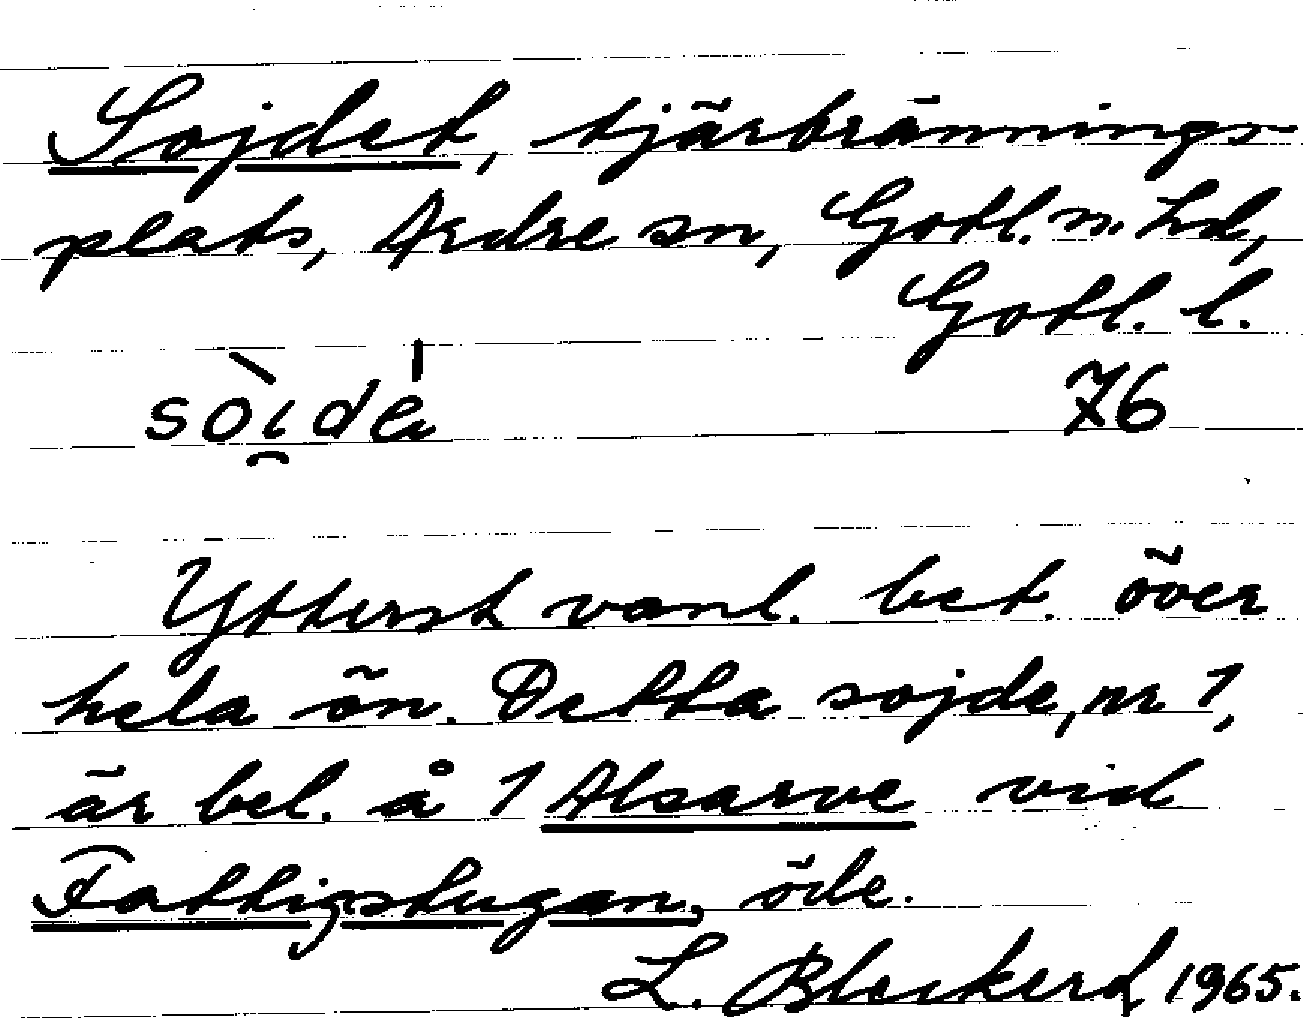 Sojdet, tjärbrännings-
plats, Ardre sn, Gotl. n. hd,
Gotl. l.
sòi̯dé 76
Ytterst vanl. bet. över
hela ön. Detta sojde, nr 1,
är bel. å 1 Alsarve vid
Fattigstugan, öde.
L. Bleckerd, 1965.